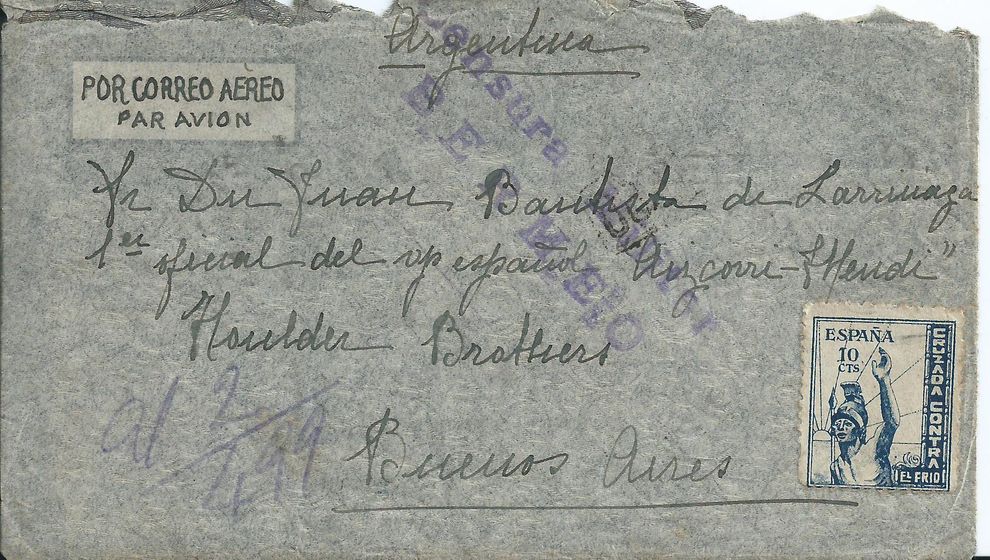 Argentina
POR CORREO AEREO
PAR AVION
Censura
Sr Dn Juan Bautista de Larrinaga
1er oficial del vp español "Aizcorri-Mendi"
Houlder Brothers
Buenos Aires
al
ESPAÑA
10
CTS
CRUZADA CONTRA
EL FRIO